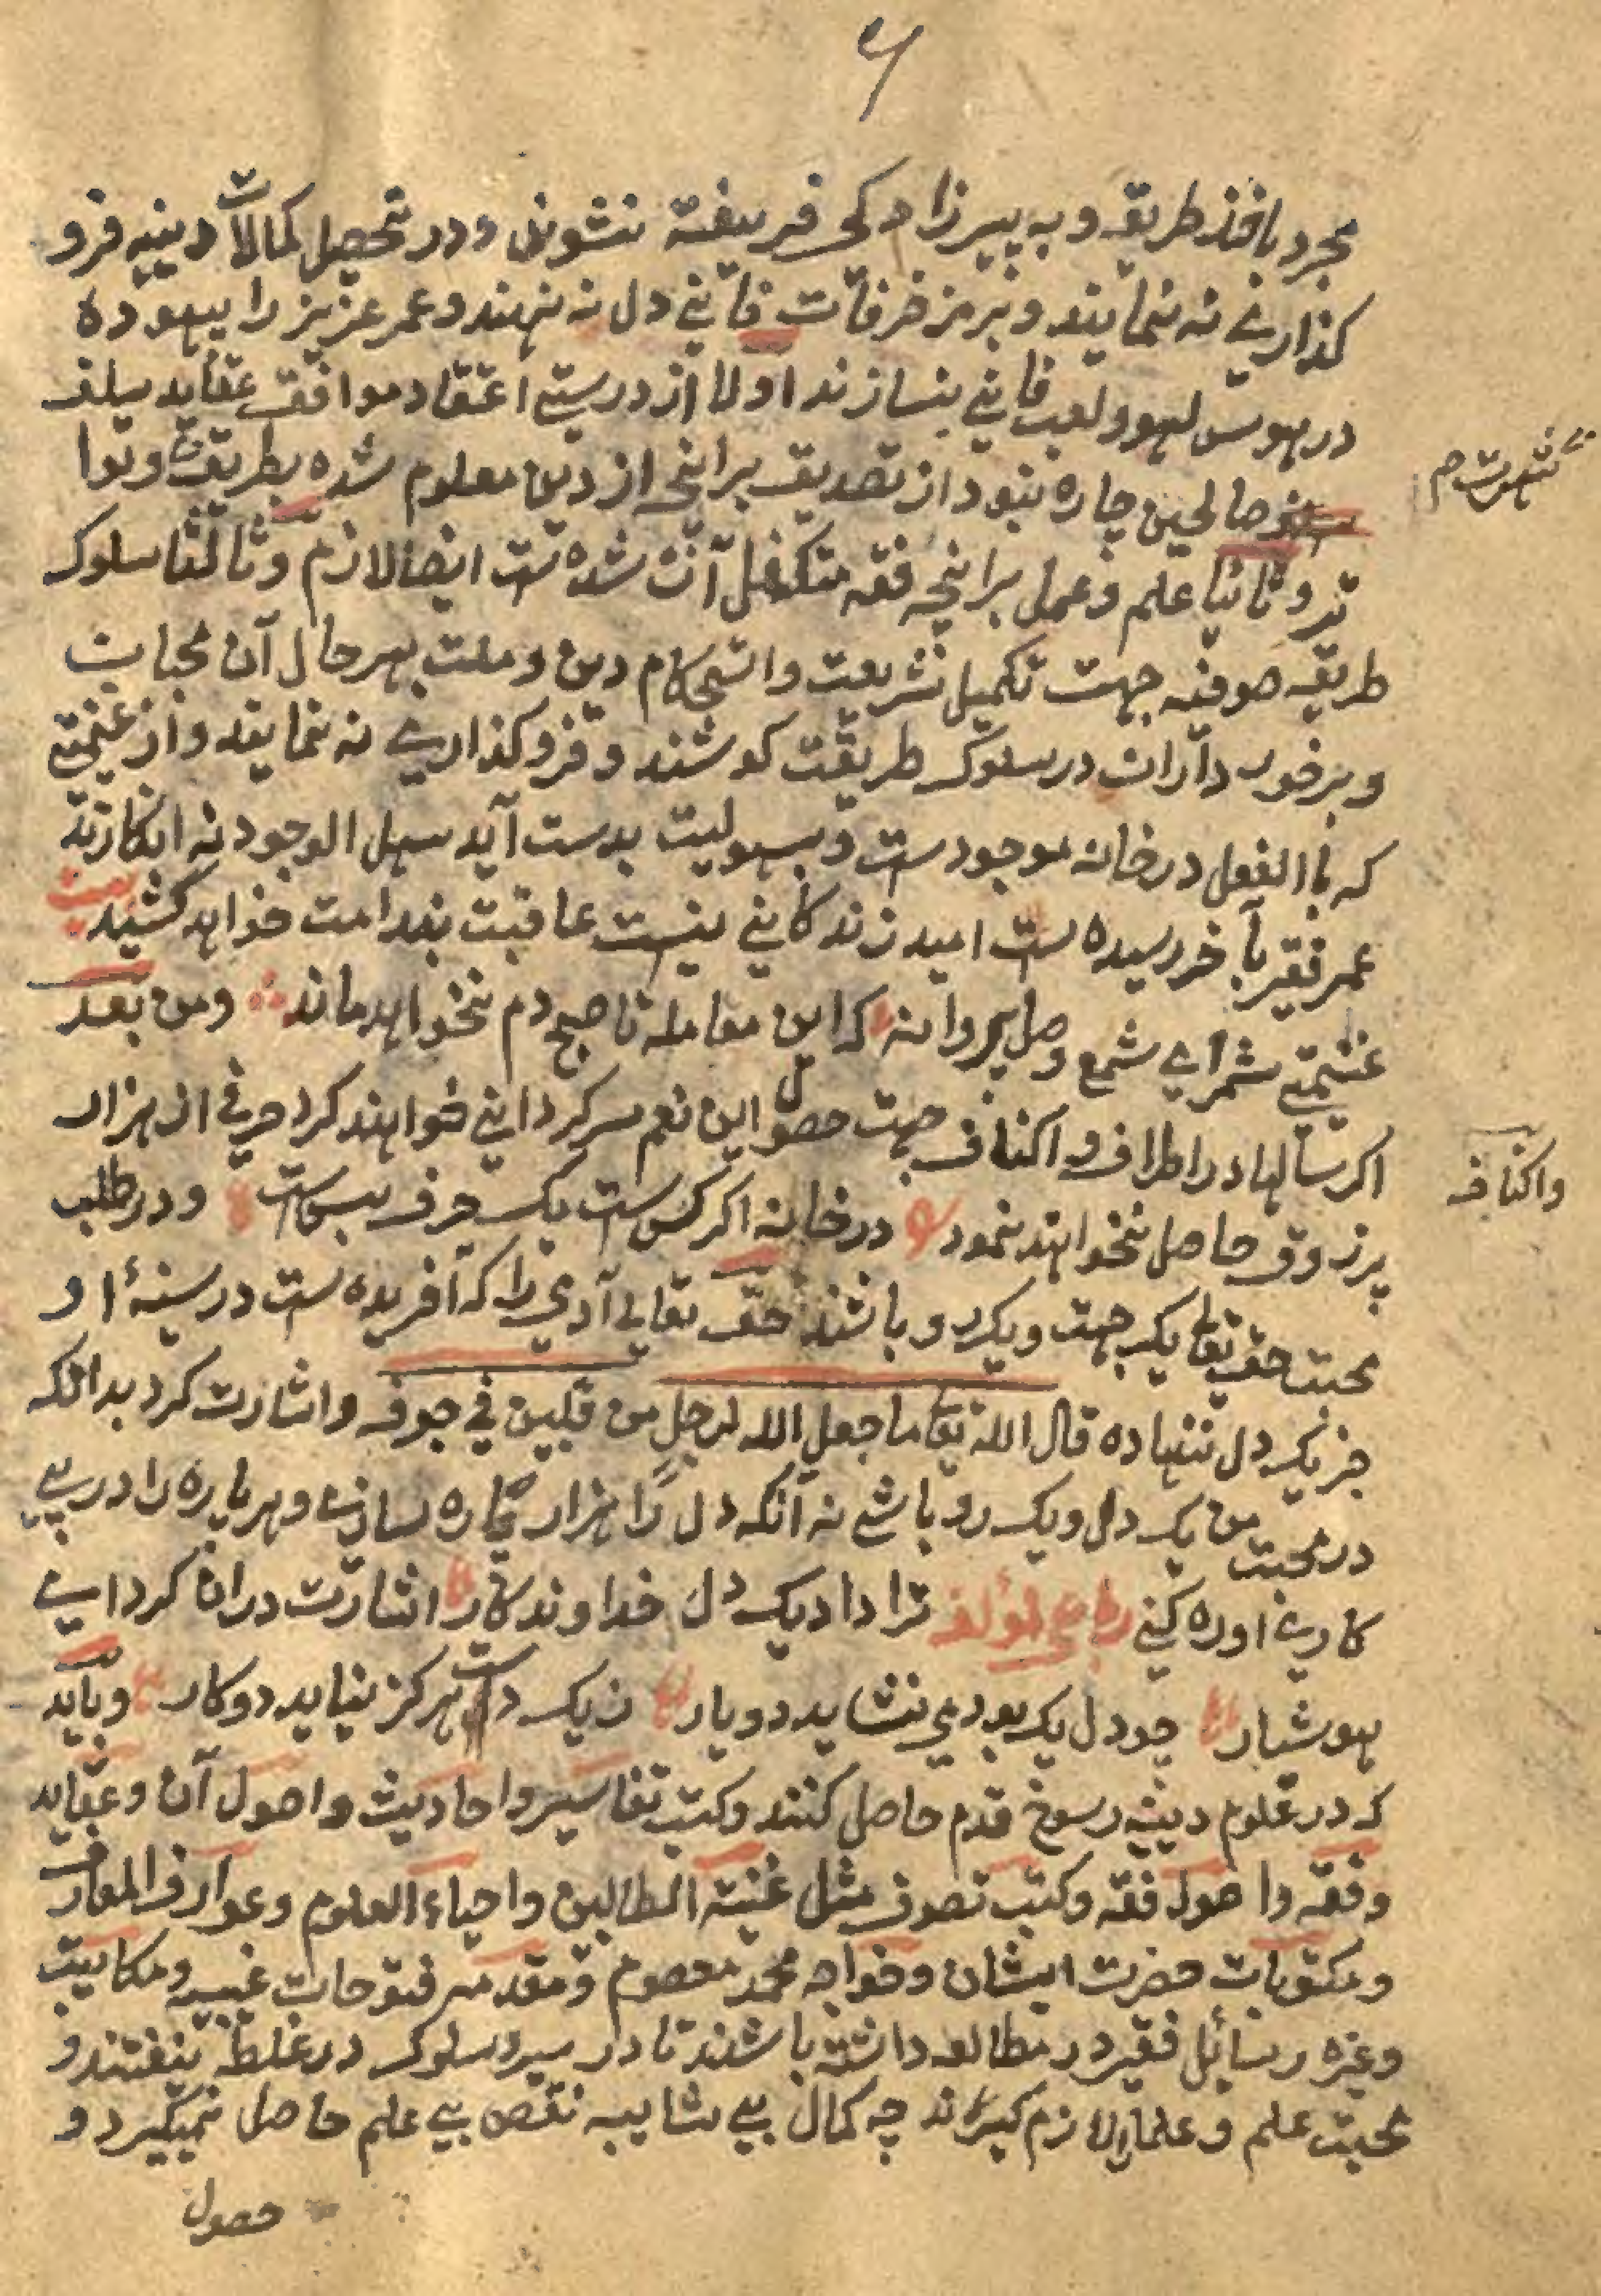 ۶
مجرد باخذ طریقه و به پیرزادکی فریفته نشوند و در تحصیل کمالات دینیه فرو
کذاری نه نمایند و بر مزخرفات فانی دل نه نهند و عمر عزیز را بیهوده
در هوس لهو و لعب فانی نسازند اولا از درستی اعتقاد موافق عقاید سلف
صالحین چاره نبود از تصدیق برانچه از دین معلوم شده بطریق وتوا
تر و ثانیا علم و عمل برانچه فقه متکفل آن شده است ایضا لازم و ثالثا سلوک
طریقه صوفیه جهت تکمیل شریعت و استحکام دین و ملت بهر حال آن محبان
و برخورداران در سلوک طریقت کوشند و فروکذاری نه نمایند و از غنیمتی
که باالفعل در خانه موجودست و بسهولیت بدست آید سهل الوجود نه انکارند
عمر فقیر بآخر رسیده است امید زندکانی نیست عاقبت بندامت خواهد کشید بیت
غنیمتی شمر ای شمع وصل پروانه که این معامله تا صبح دم نخواهد ماند ومن بعد
اکر سالها در اطراف و اکناف جهت حصول این نعم سرکردانی خواهند کرد حرفی از هزار
واکناف
پر ذوق حاصل نخواهند نمود در خانه اکر کس است یک حرف بس است و در طلب
محبت حق تعا یک جهت و یکرو باشند حق تعالی آدمی را که آفریده است در سینهٔ او
جز یک دل ننهاده قال الله تعا ما جعل الله لرجل من قلبین فی جوفه و اشارت کرد بدانکه
در محبت من یک دل و یک رو باشی نه آنکه دل را هزار پاره سازی و هر پاره را در پی
کاری اوره کنی رباعی لمؤلفه ترا داد یک دل خداوندکار اشارت دران کرد ای
هوشیار چو دل یک بود می نشاید دو یار زیک دست هرکز نیاید دو کار و باید
که در علوم دینیه رسوخ قدم حاصل کنند و کتب تفاسیر و احادیث و اصول آن و عقاید
و فقه و اصول فقه و کتب تصوف مثل غنیة الطالبین و احیاء العلوم و عوارف المعارف
و مکتوبات حضرت ایشان و خواجه محمد معصوم و مقدمه فتوحات غیبیه و مکاتیب
و غیره رسائل فقیر در مطالعه داشته باشند تا در سیر و سلوک در غلط نیفتند و
محبت علم و علما را لازم کیرند چه کمال بی شایبه نقص بی علم حاصل نمیکیرد و
حصول